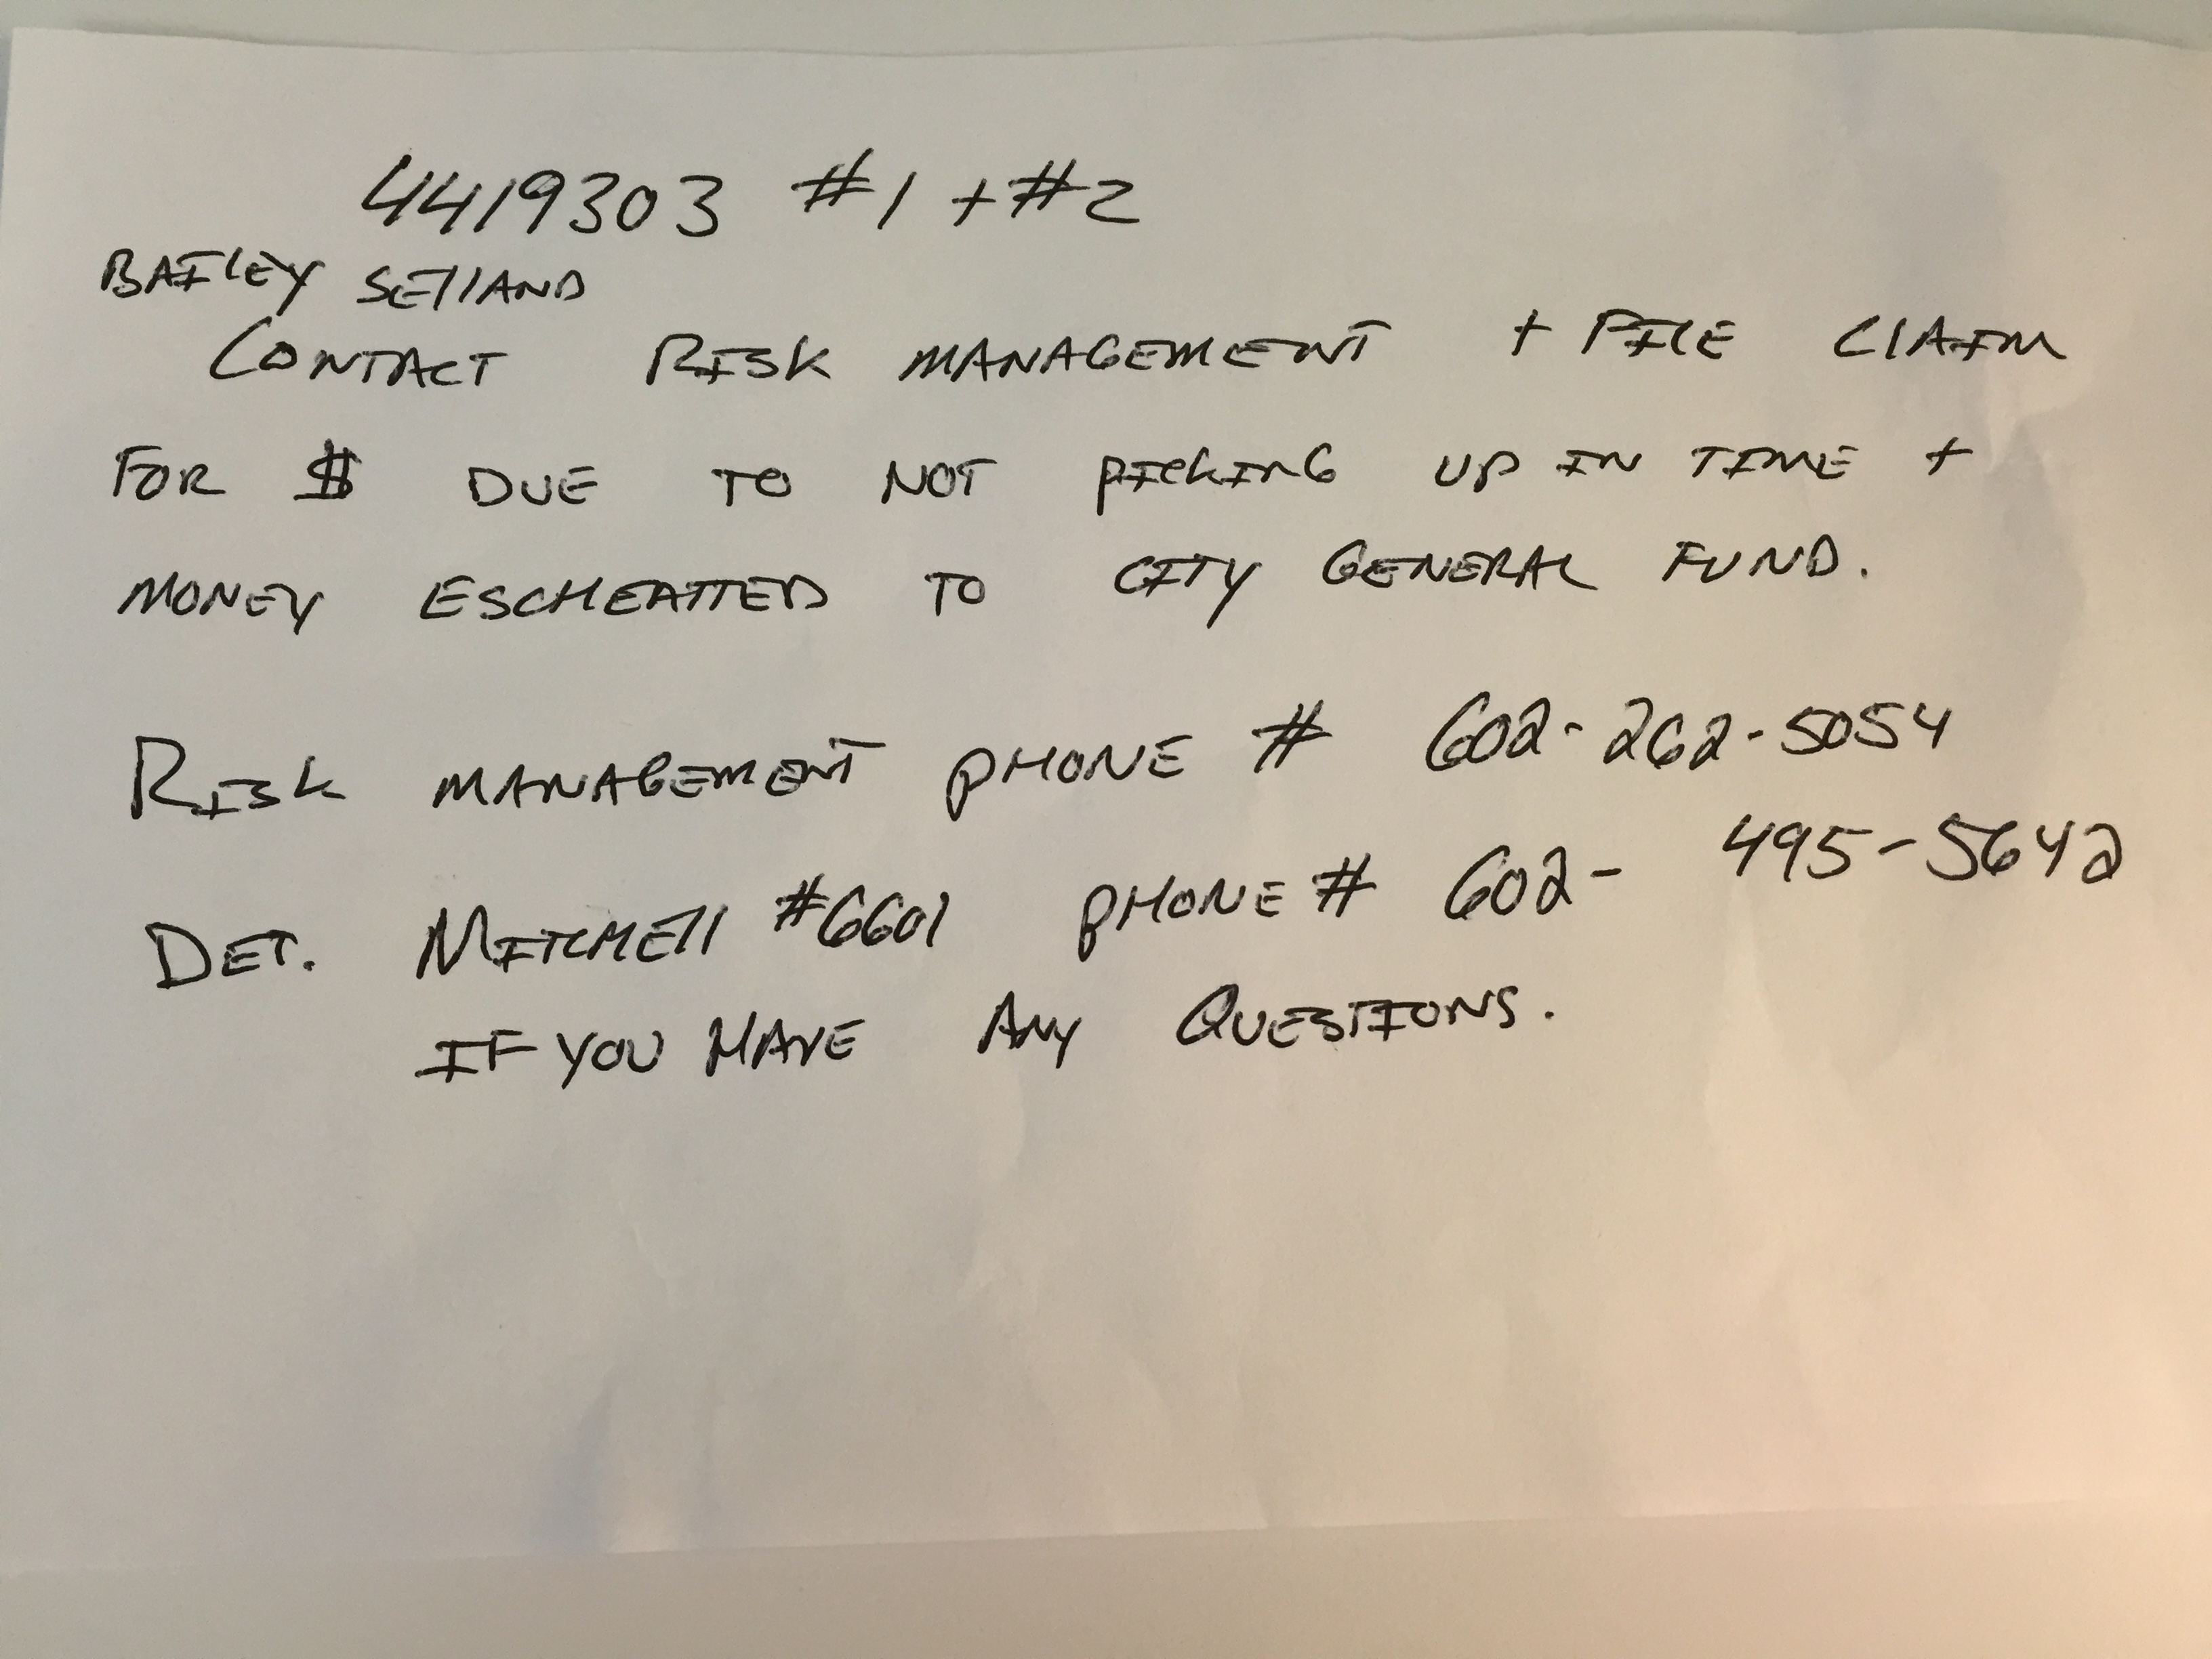 4419303 #1 + #2
BAILEY SELLAND
CONTACT RISK MANAGEMENT + FILE CLAIM
FOR $ DUE TO NOT PICKING UP IN TIME +
MONEY ESCHEATTED TO CITY GENERAL FUND.
RISK MANAGEMENT PHONE # 602-262-5054
DET. MITCHELL #6601 PHONE # 602-495-5642
IF YOU HAVE ANY QUESTIONS.